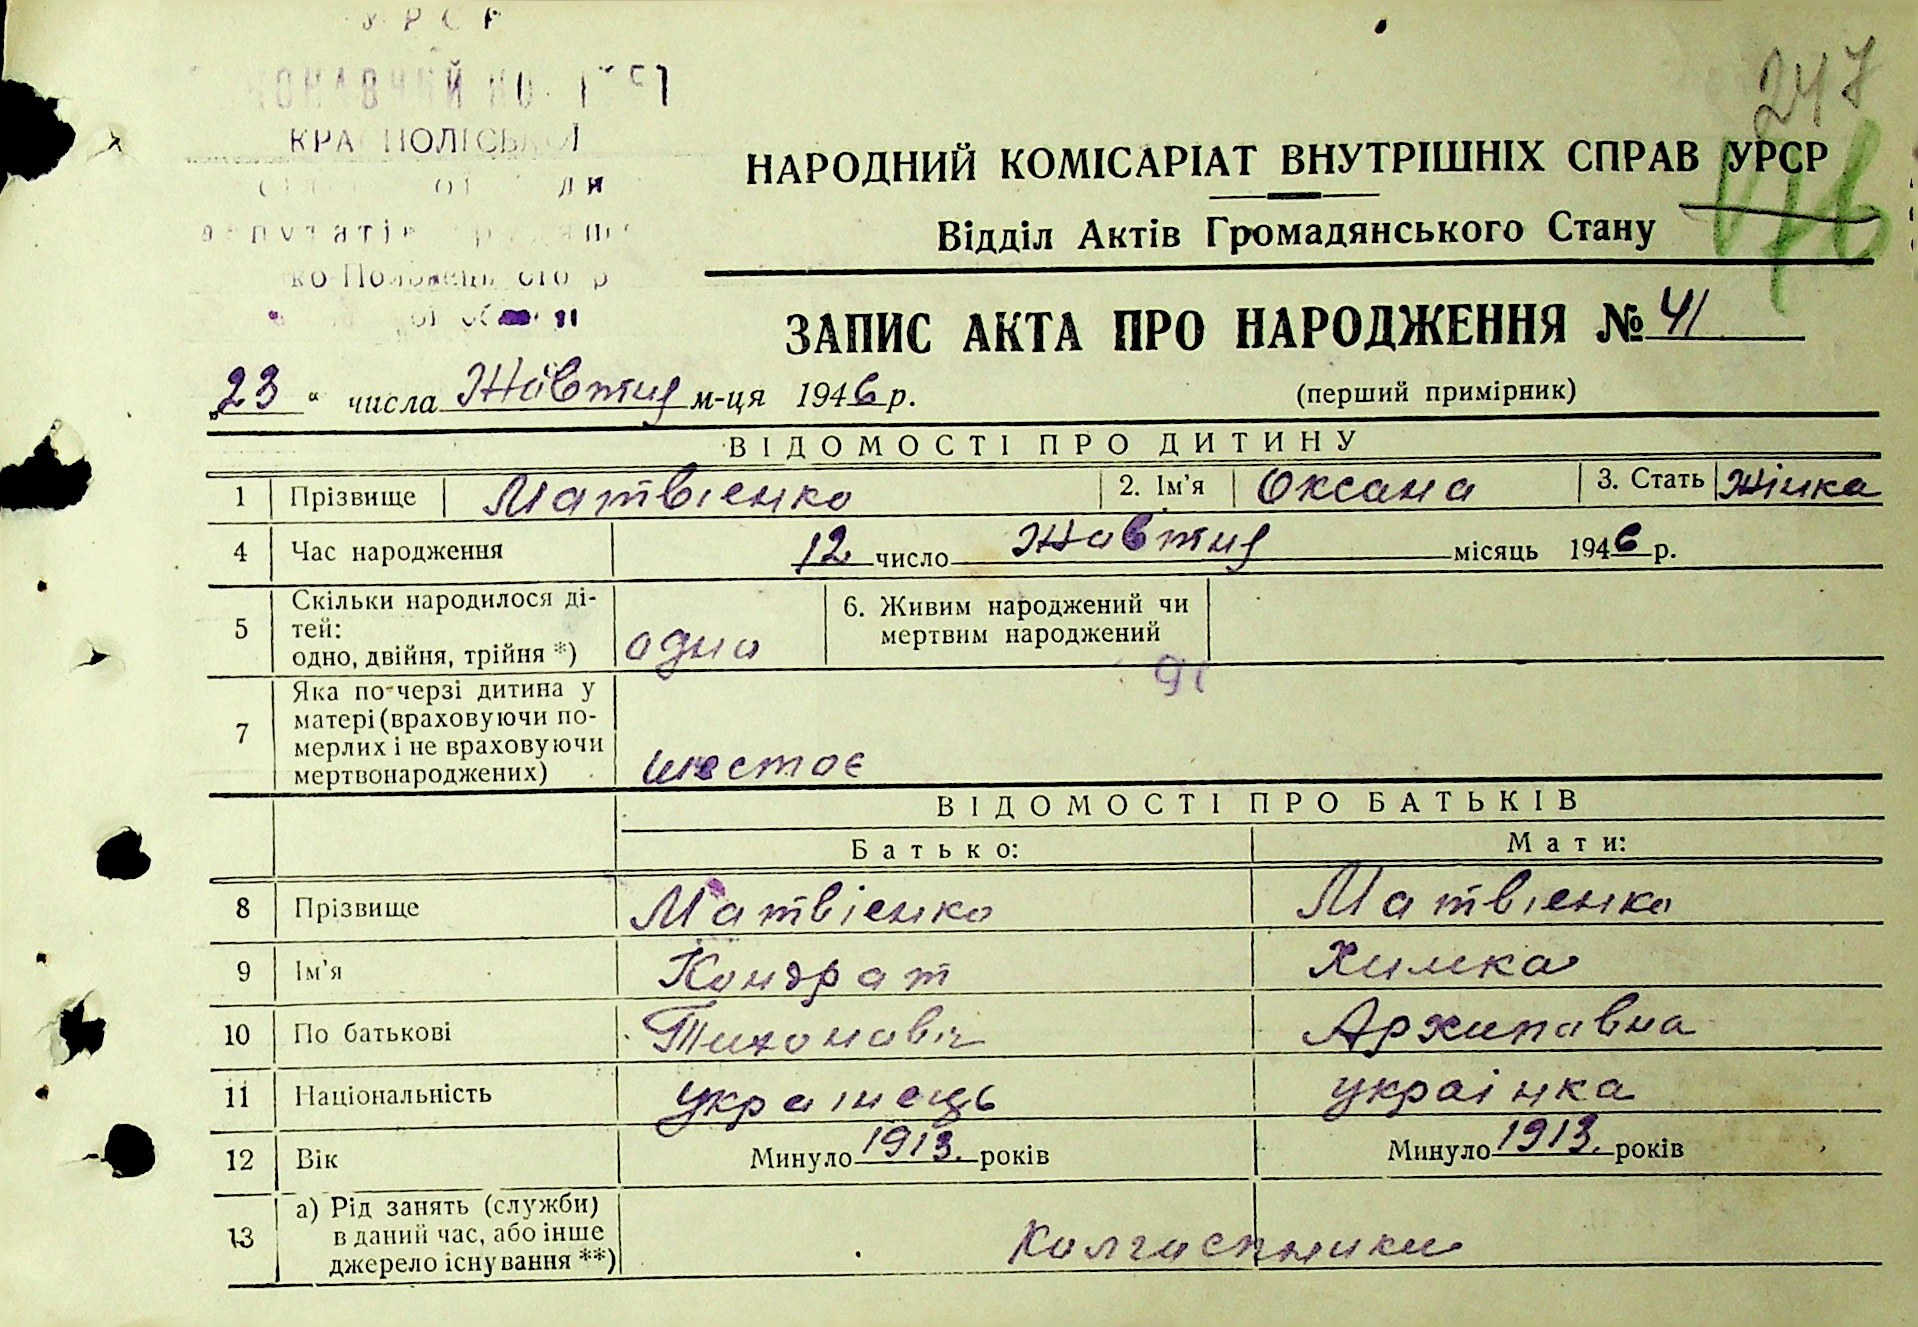 УРСР
КРАСНОПІЛЬСЬКОЇ
247
НАРОДНИЙ КОМІСАРІАТ ВНУТРІШНІХ СПРАВ УРСР
Відділ Актів Громадянського Стану
ЗАПИС АКТА ПРО НАРОДЖЕННЯ № 41
„23“ числа Жовтня м-ця 1946 р.
(перший примірник)
ВІДОМОСТІ ПРО ДИТИНУ
1 Прізвище Матвіенко 2. Ім'я Оксана 3. Стать Жінка
4 Час народження 12 число Жовтня місяць 1946 р.
5 Скільки народилося ді-
тей:
одно, двійня, трійня *) одно
6. Живим народжений чи
мертвим народжений
7 Яка по черзі дитина у
матері (враховуючи по-
мерлих і не враховуючи
мертвонароджених) шестоє
ВІДОМОСТІ ПРО БАТЬКІВ
Батько: Мати:
8 Прізвище Матвіенко Матвіенко
9 Ім'я Кондрат Химка
10 По батькові Тихонавіч Архипавна
11 Національність українець українка
12 Вік Минуло 1913. років Минуло 1913. років
13 а) Рід занять (служби)
в даний час, або інше
джерело існування **) Колгоспники